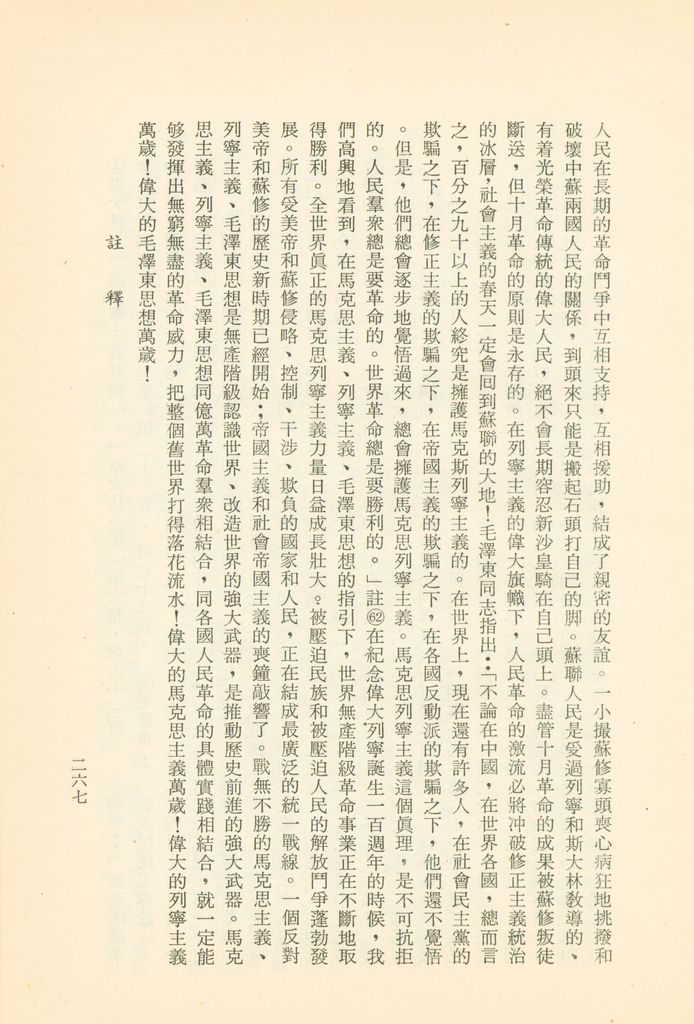 人民在長期的革命鬥爭中互相支持，互相援助，結成了親密的友誼。一小撮蘇修寡頭喪心病狂地挑撥和
破壞中蘇兩國人民的關係，到頭來只能是搬起石頭打自己的脚。蘇聯人民是受過列寧和斯大林敎導的、
有着光榮革命傳統的偉大人民，絕不會長期容忍新沙皇騎在自己頭上。盡管十月革命的成果被蘇修叛徒
斷送，但十月革命的原則是永存的。在列寧主義的偉大旗幟下，人民革命的激流必將冲破修正主義統治
的冰層，社會主義的春天一定會回到蘇聯的大地！毛澤東同志指出：「不論在中國，在世界各國，總而言
之，百分之九十以上的人終究是擁護馬克斯列寧主義的。在世界上，現在還有許多人，在社會民主黨的
欺騙之下，在修正主義的欺騙之下，在帝國主義的欺騙之下，在各國反動派的欺騙之下，他們還不覺悟
。但是，他們總會逐步地覺悟過來，總會擁護馬克思列寧主義。馬克思列寧主義這個眞理，是不可抗拒
的。人民羣衆總是要革命的。世界革命總是要勝利的。」註㉒在紀念偉大列寧誕生一百週年的時候，我
們高興地看到，在馬克思主義、列寧主義、毛澤東思想的指引下，世界無產階級革命事業正在不斷地取
得勝利。全世界眞正的馬克思列寧主義力量日益成長壯大。被壓迫民族和被壓迫人民的解放鬥爭蓬勃發
展。所有受美帝和蘇修侵略、控制、干涉、欺負的國家和人民，正在結成最廣泛的統一戰線。一個反對
美帝和蘇修的歷史新時期已經開始；帝國主義和社會帝國主義的喪鐘敲響了。戰無不勝的馬克思主義、
列寧主義、毛澤東思想是無產階級認識世界、改造世界的強大武器，是推動歷史前進的強大武器。馬克
思主義、列寧主義、毛澤東思想同億萬革命羣衆相結合，同各國人民革命的具體實踐相結合，就一定能
够發揮出無窮無盡的革命威力，把整個舊世界打得落花流水！偉大的馬克思主義萬歲！偉大的列寧主義
萬歲！偉大的毛澤東思想萬歲！
註釋
二六七